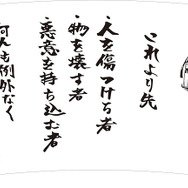 これより先
・人を傷つける者
・物を壊す者
・悪意を持ち込む者
何人も例外なく